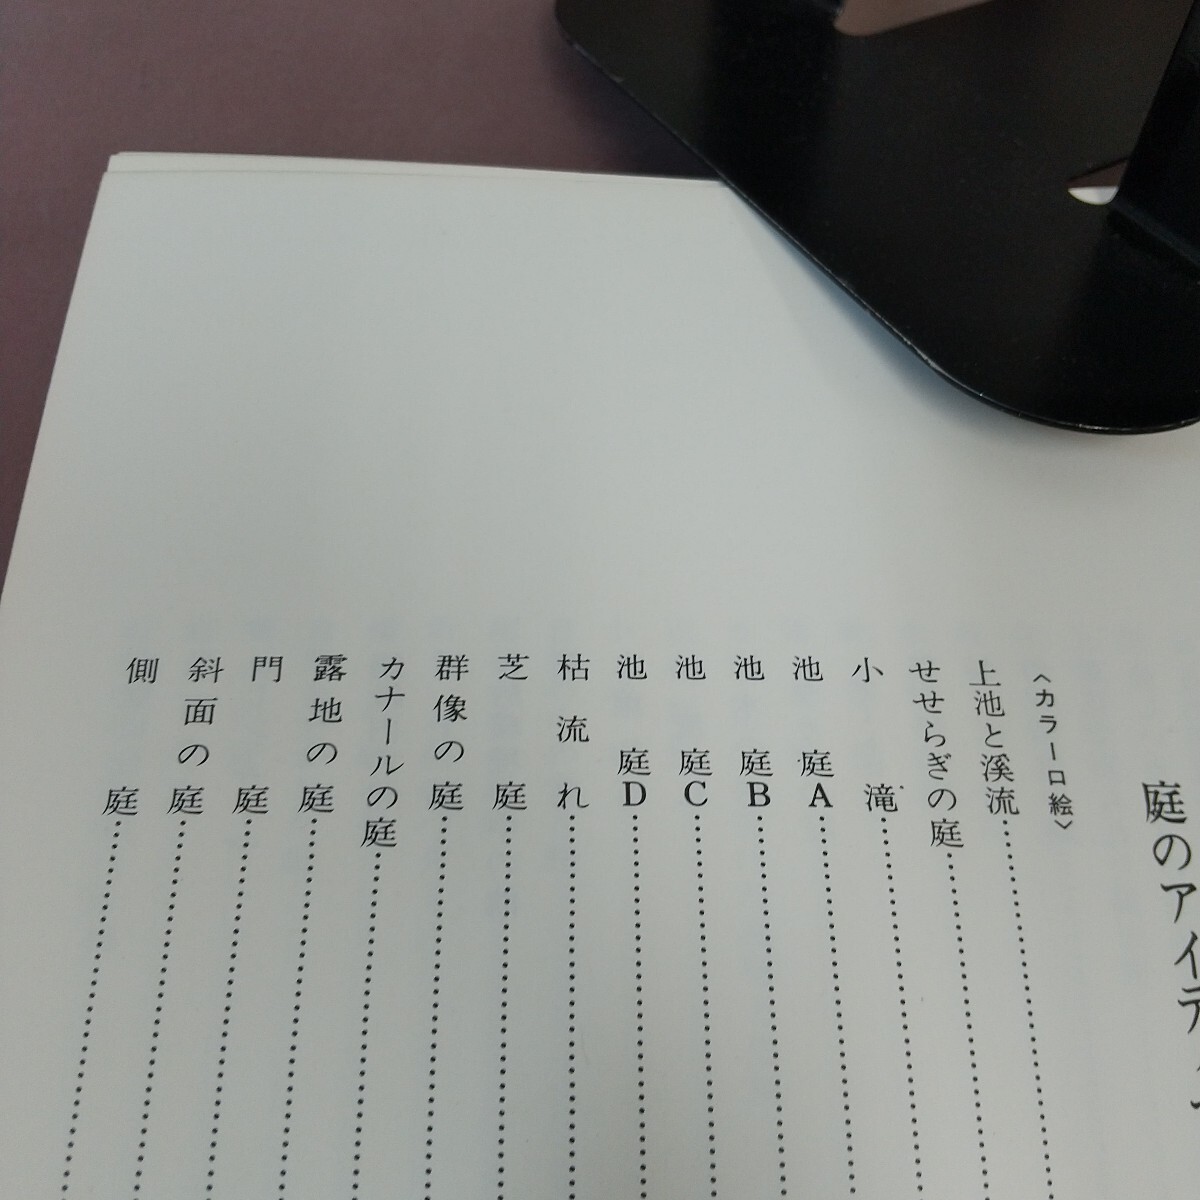 庭のアイデ
〈カラー口絵〉
上池と溪流
せせらぎの庭
小滝
池庭A
池庭B
池庭C
池庭D
枯流れ
芝庭
群像の庭
カナールの庭
露地の庭
門庭
斜面の庭
側庭